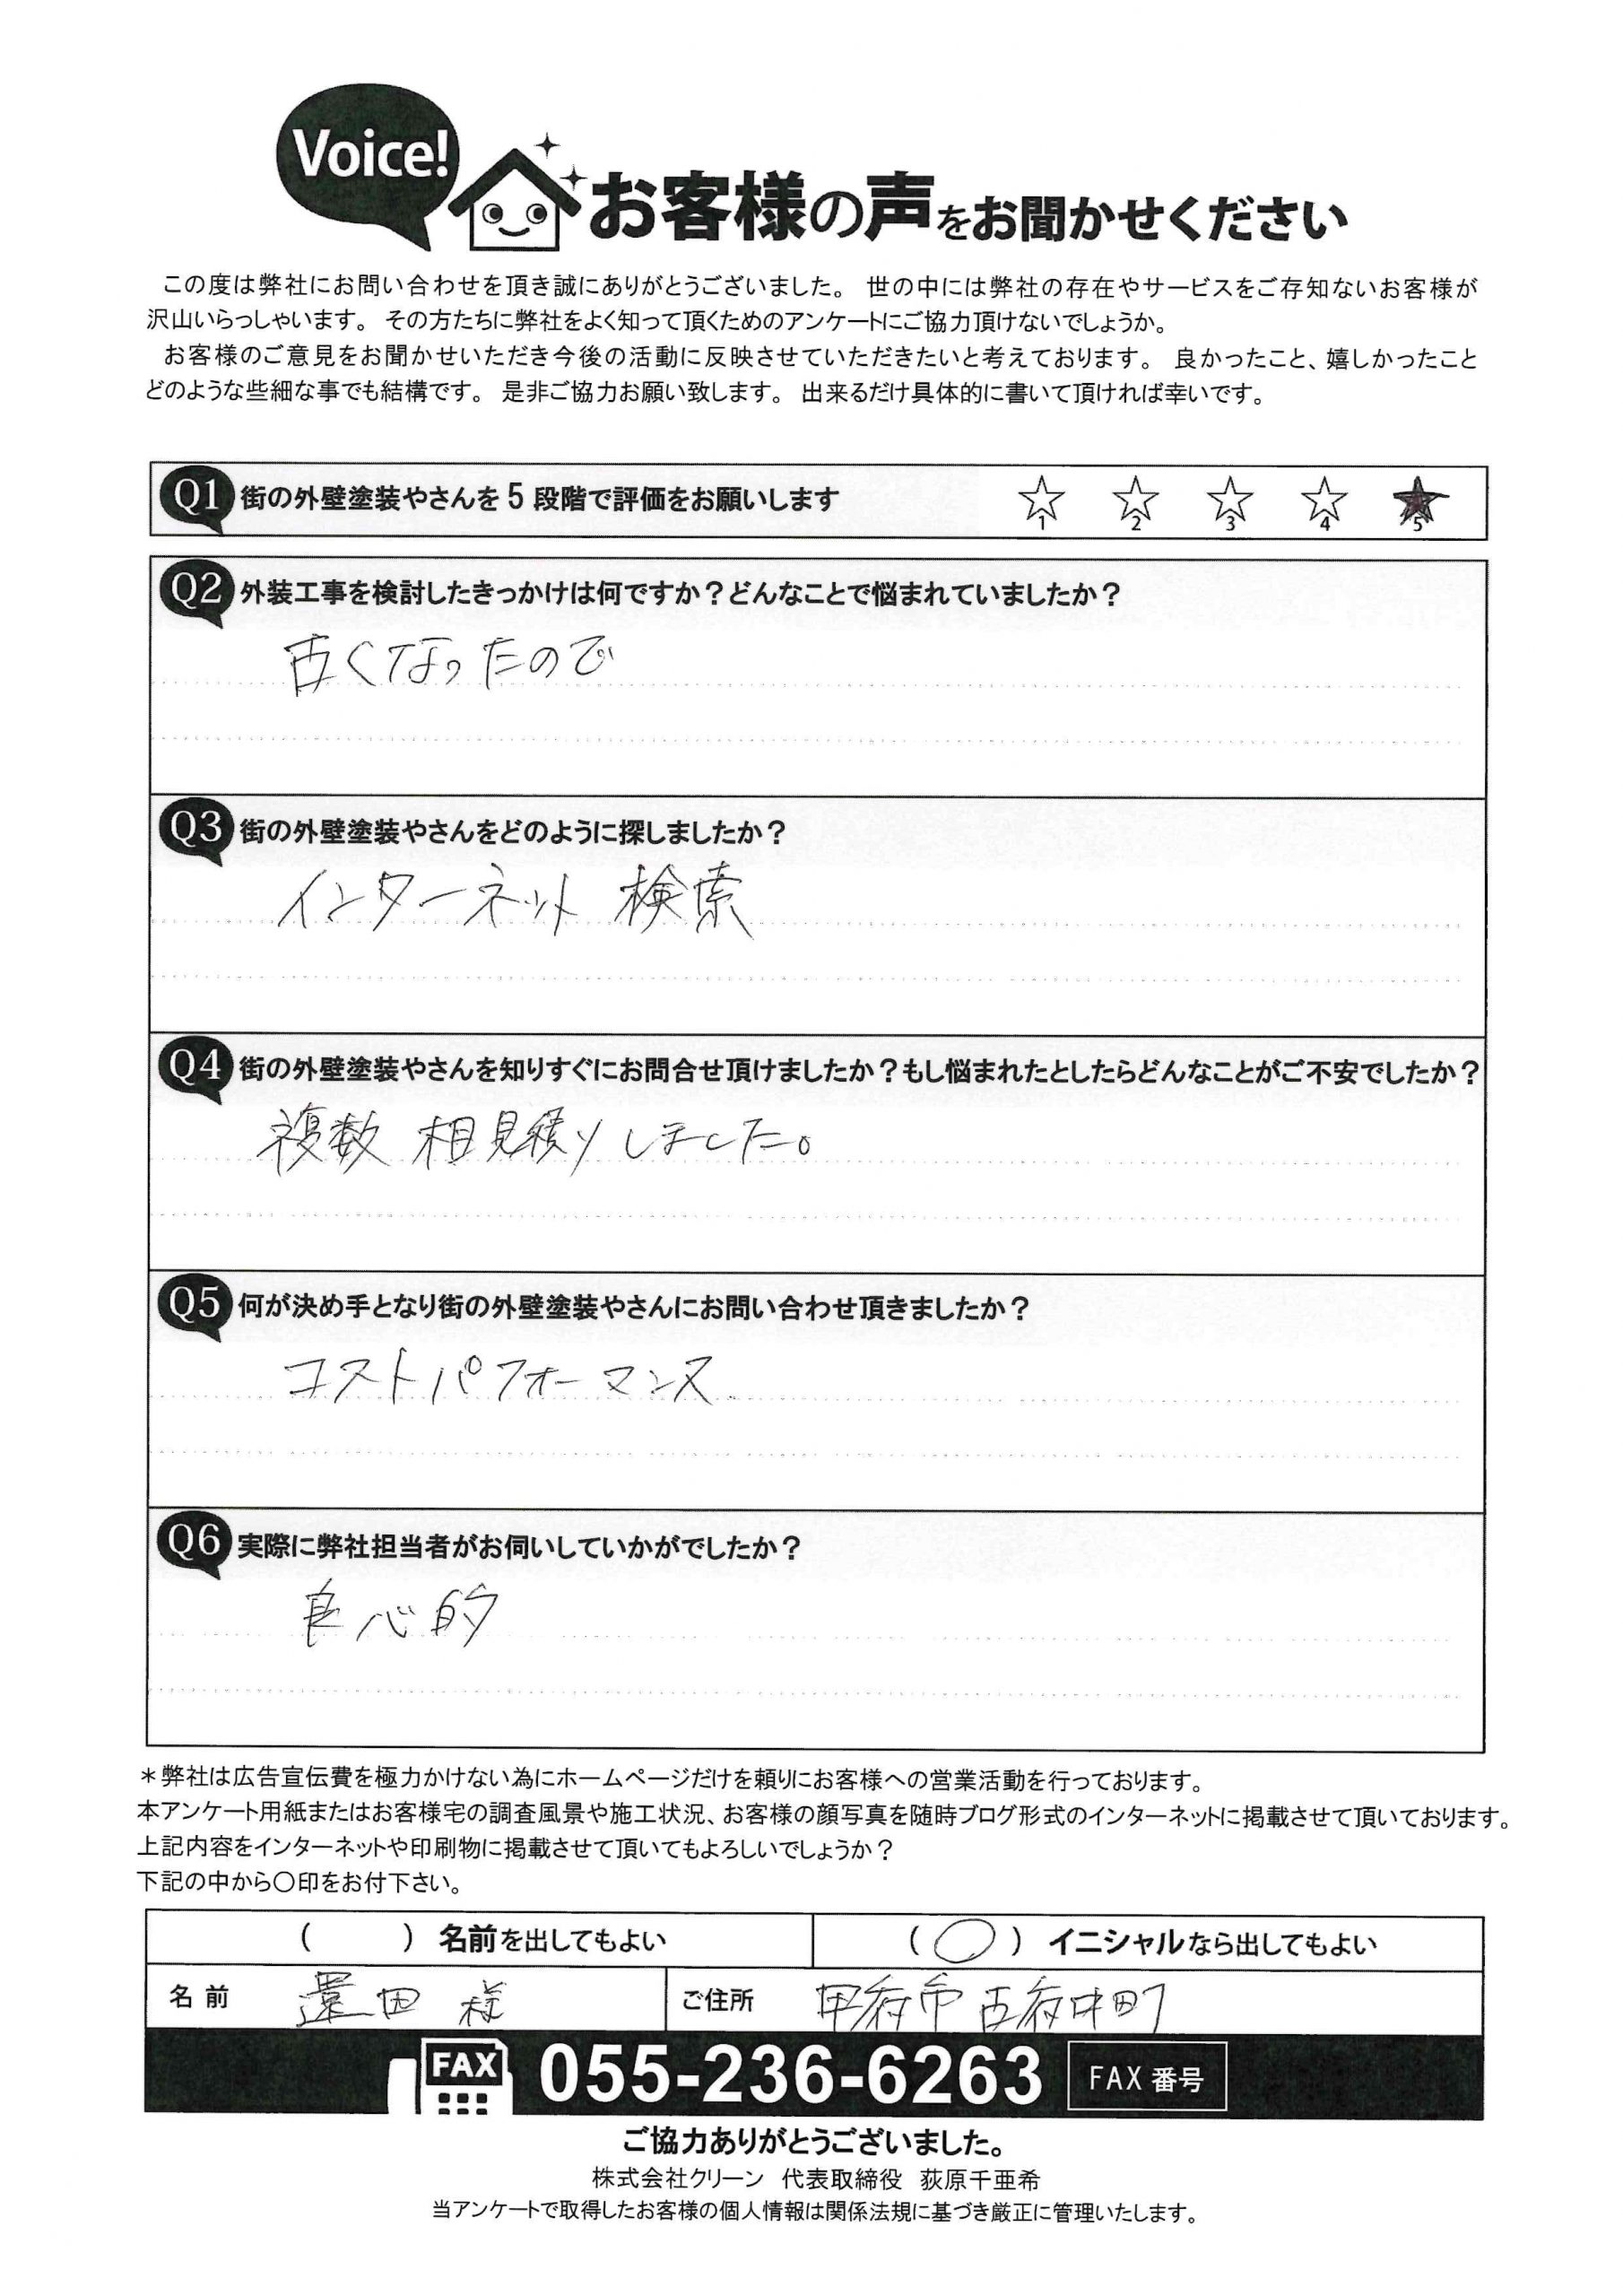 Voice!
お客様の声をお聞かせください
この度は弊社にお問い合わせを頂き誠にありがとうございました。 世の中には弊社の存在やサービスをご存知ないお客様が
沢山いらっしゃいます。 その方たちに弊社をよく知って頂くためのアンケートにご協力頂けないでしょうか。
お客様のご意見をお聞かせいただき今後の活動に反映させていただきたいと考えております。 良かったこと、嬉しかったこと
どのような些細な事でも結構です。 是非ご協力お願い致します。 出来るだけ具体的に書いて頂ければ幸いです。
Q1 街の外壁塗装やさんを5段階で評価をお願いします ☆1 ☆2 ☆3 ☆4 ★5
Q2 外装工事を検討したきっかけは何ですか？どんなことで悩まれていましたか？
古くなったので
Q3 街の外壁塗装やさんをどのように探しましたか？
インターネット 検索
Q4 街の外壁塗装やさんを知りすぐにお問合せ頂けましたか？もし悩まれたとしたらどんなことがご不安でしたか？
複数 相見積りしました。
Q5 何が決め手となり街の外壁塗装やさんにお問い合わせ頂きましたか？
コストパフォーマンス
Q6 実際に弊社担当者がお伺いしていかがでしたか？
良心的
＊弊社は広告宣伝費を極力かけない為にホームページだけを頼りにお客様への営業活動を行っております。
本アンケート用紙またはお客様宅の調査風景や施工状況、お客様の顔写真を随時ブログ形式のインターネットに掲載させて頂いております。
上記内容をインターネットや印刷物に掲載させて頂いてもよろしいでしょうか？
下記の中から〇印をお付下さい。
（　　）名前を出してもよい （〇）イニシャルなら出してもよい
名前 田 様 ご住所 甲府市古府中町
FAX 055-236-6263 FAX 番号
ご協力ありがとうございました。
株式会社クリーン 代表取締役 荻原千亜希
当アンケートで取得したお客様の個人情報は関係法規に基づき厳正に管理いたします。